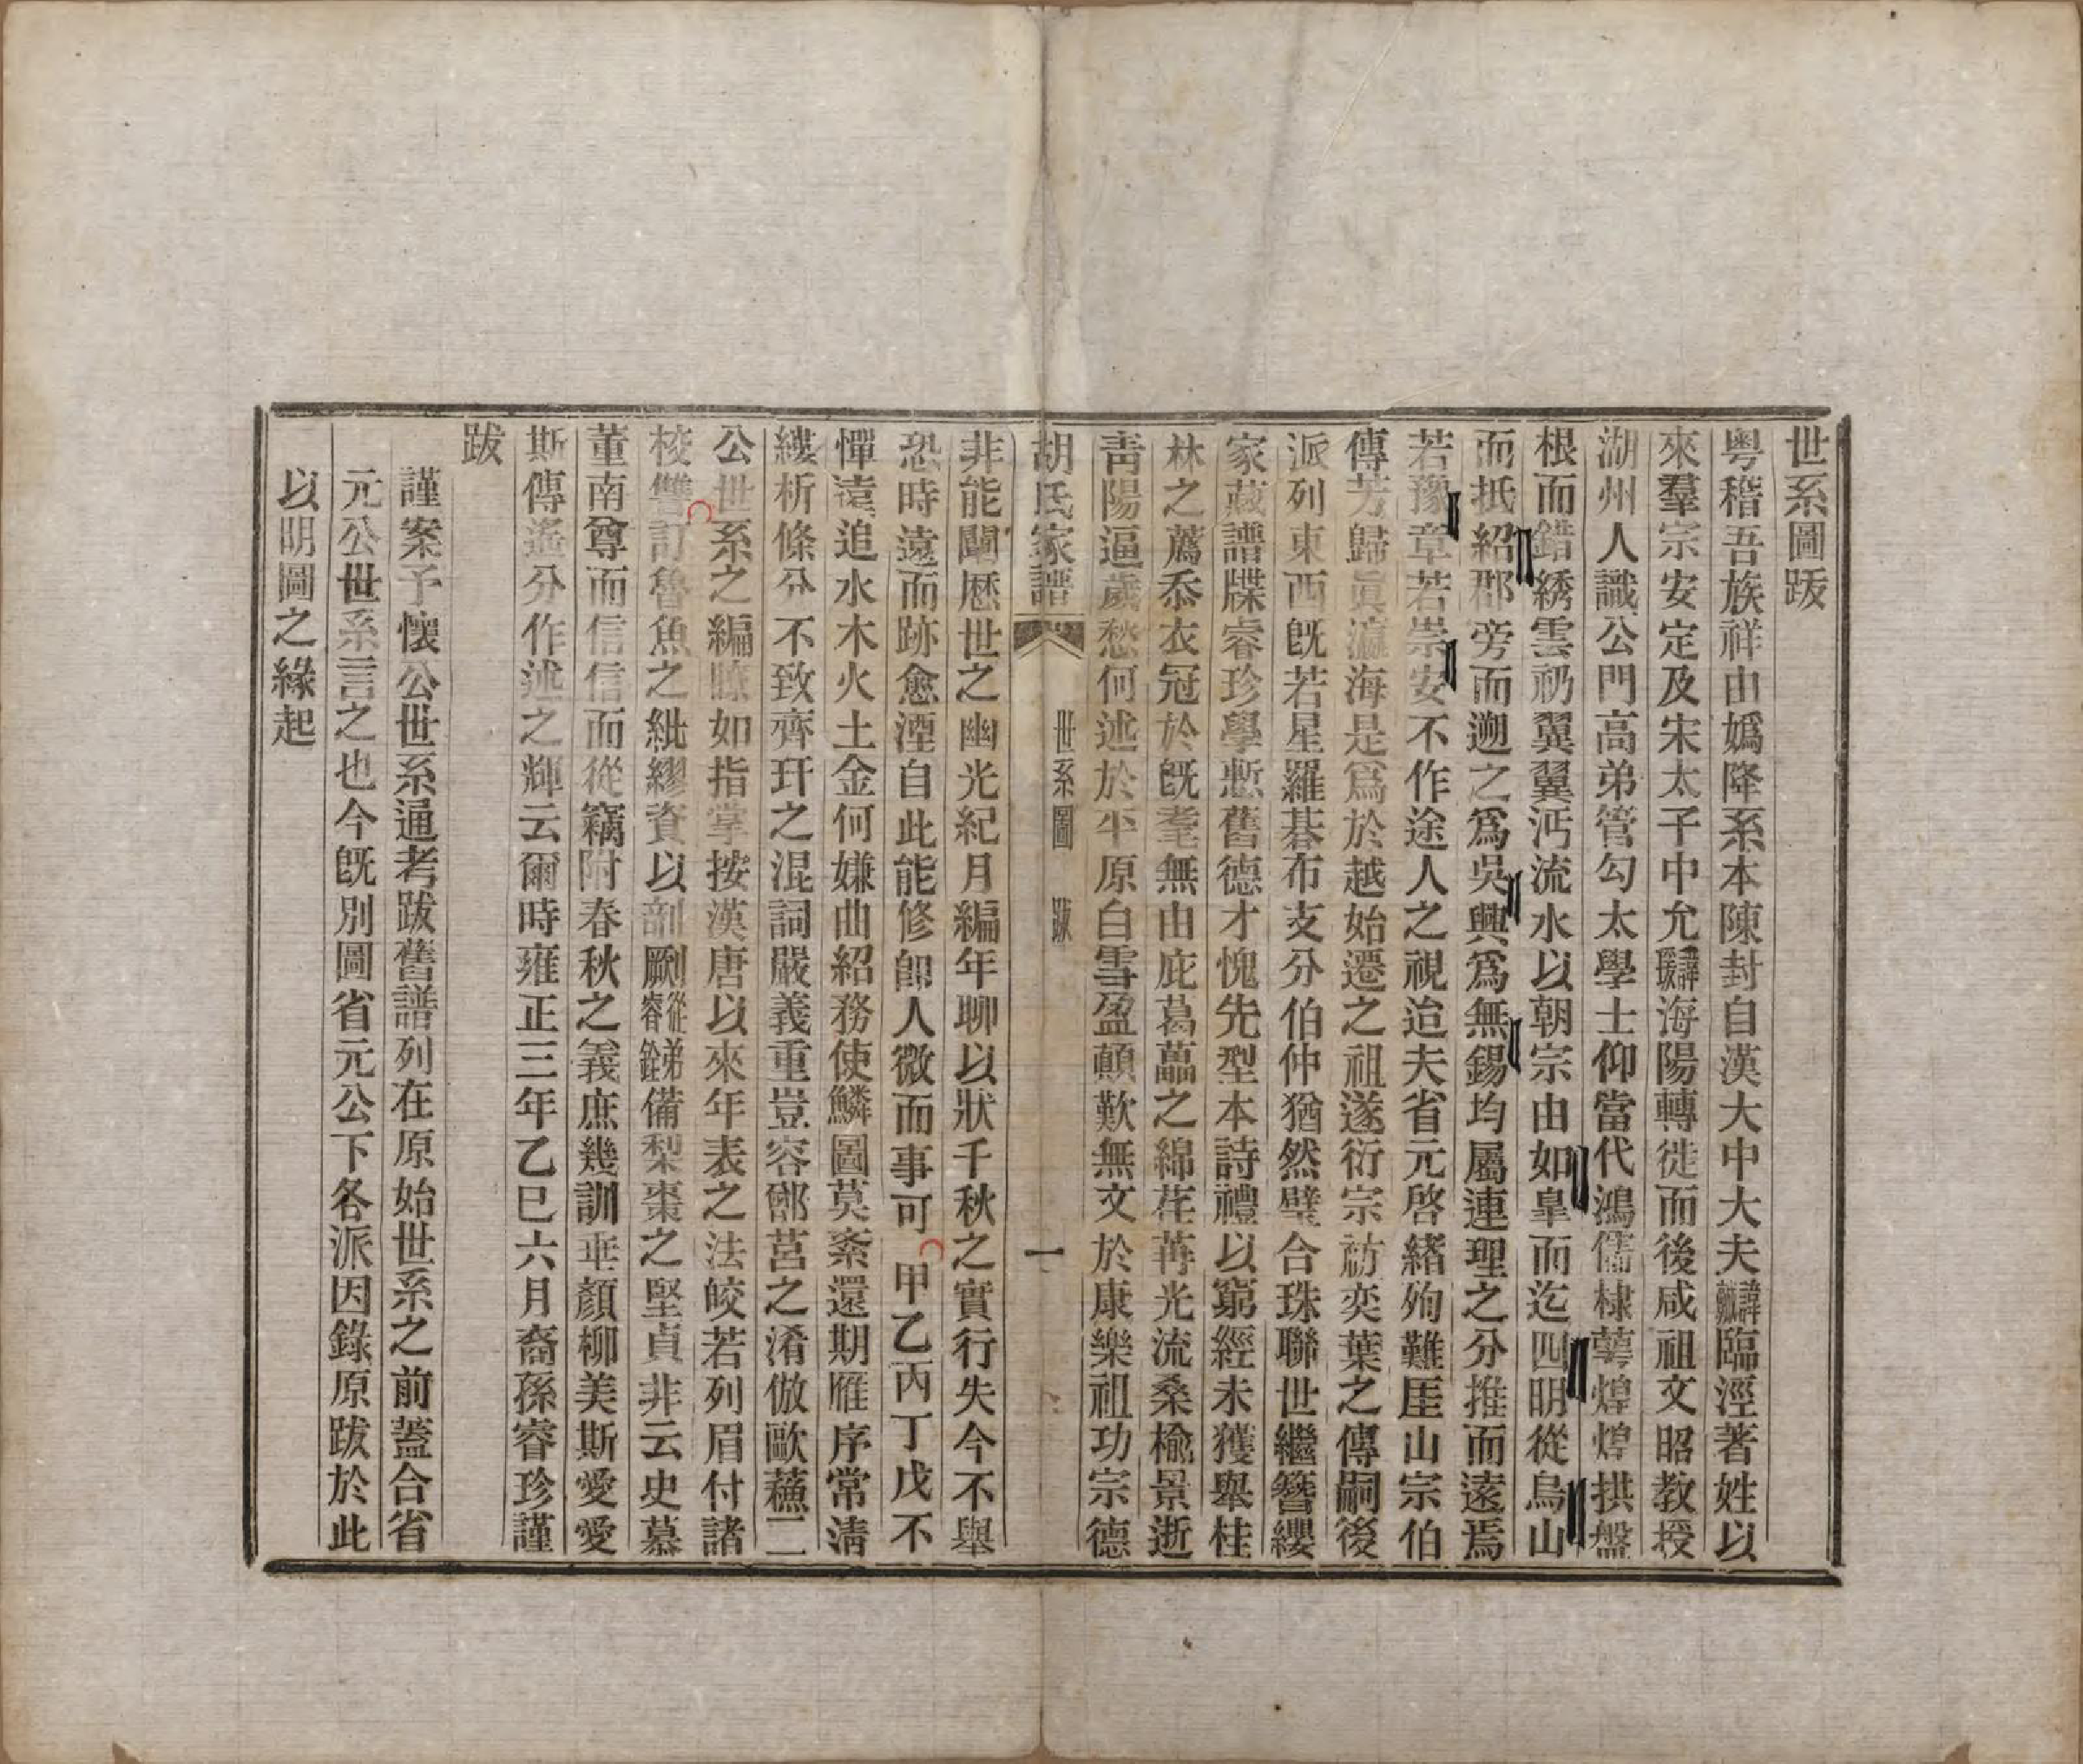 世系圖跋
粤稽吾族祥由嬀降系本陳封自漢大中大夫諱臨涇著姓以
來羣宗安定及宋太子中允諱瑗海陽轉徙而後咸祖文昭教授
湖州人識公門高弟管勾太學士仰當代鴻儒棣萼煌煌拱盤
根而錯綉雲礽翼翼沔流水以朝宗由如臯而迄四明從烏山
而抵紹郡旁而遡之爲吳興爲無錫均屬連理之分推而遠焉
若豫章若崇安不作途人之視迨夫省元啓緒殉難厓山宗伯
傳芳歸眞瀛海是爲於越始遷之祖遂衍宗祊奕葉之傳嗣後
派列東西旣若星羅棊布支分伯仲猶然璧合珠聯世繼簪纓
家藏譜牒睿珍學慙舊德才愧先型本詩禮以窮經未獲舉桂
林之薦忝衣冠於旣耄無由庇葛藟之綿荏苒光流桑榆景逝
靑陽逼歲愁何述於平原白雪盈顚歎無文於康樂祖功宗德
胡氏家譜 世系圖 跋 一
非能闡歷世之幽光紀月編年聊以狀千秋之實行失今不舉
恐時遠而跡愈湮自此能修卽人微而事可甲乙丙丁戊不
憚遠追水木火土金何嫌曲紹務使鱗圖莫紊還期雁序常淸
縷析條分不致齊玕之混詞嚴義重豈容鄫莒之淆倣歐蘇二
公世系之編瞭如指掌按漢唐以來年表之法皎若列眉付諸
校讐訂魯魚之紕繆資以剞劂從弟睿銓備梨棗之堅貞非云史慕
董南尊而信信而從竊附春秋之義庶幾訓垂顏柳美斯愛愛
斯傳遙分作述之輝云爾時雍正三年乙巳六月裔孫睿珍謹
跋
謹案予懷公世系通考跋舊譜列在原始世系之前蓋合省
元公世系言之也今旣別圖省元公下各派因錄原跋於此
以明圖之緣起